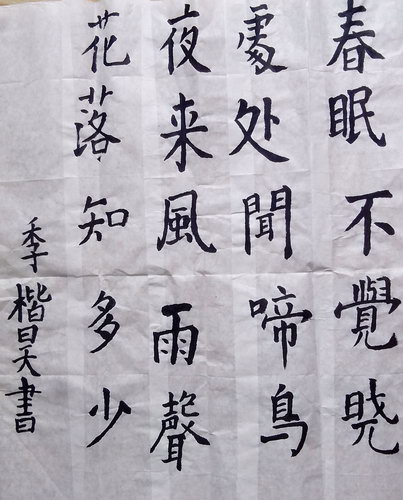 春眠不覺晓
處处聞啼鸟
夜来風雨聲
花落知多少
季楷昊書